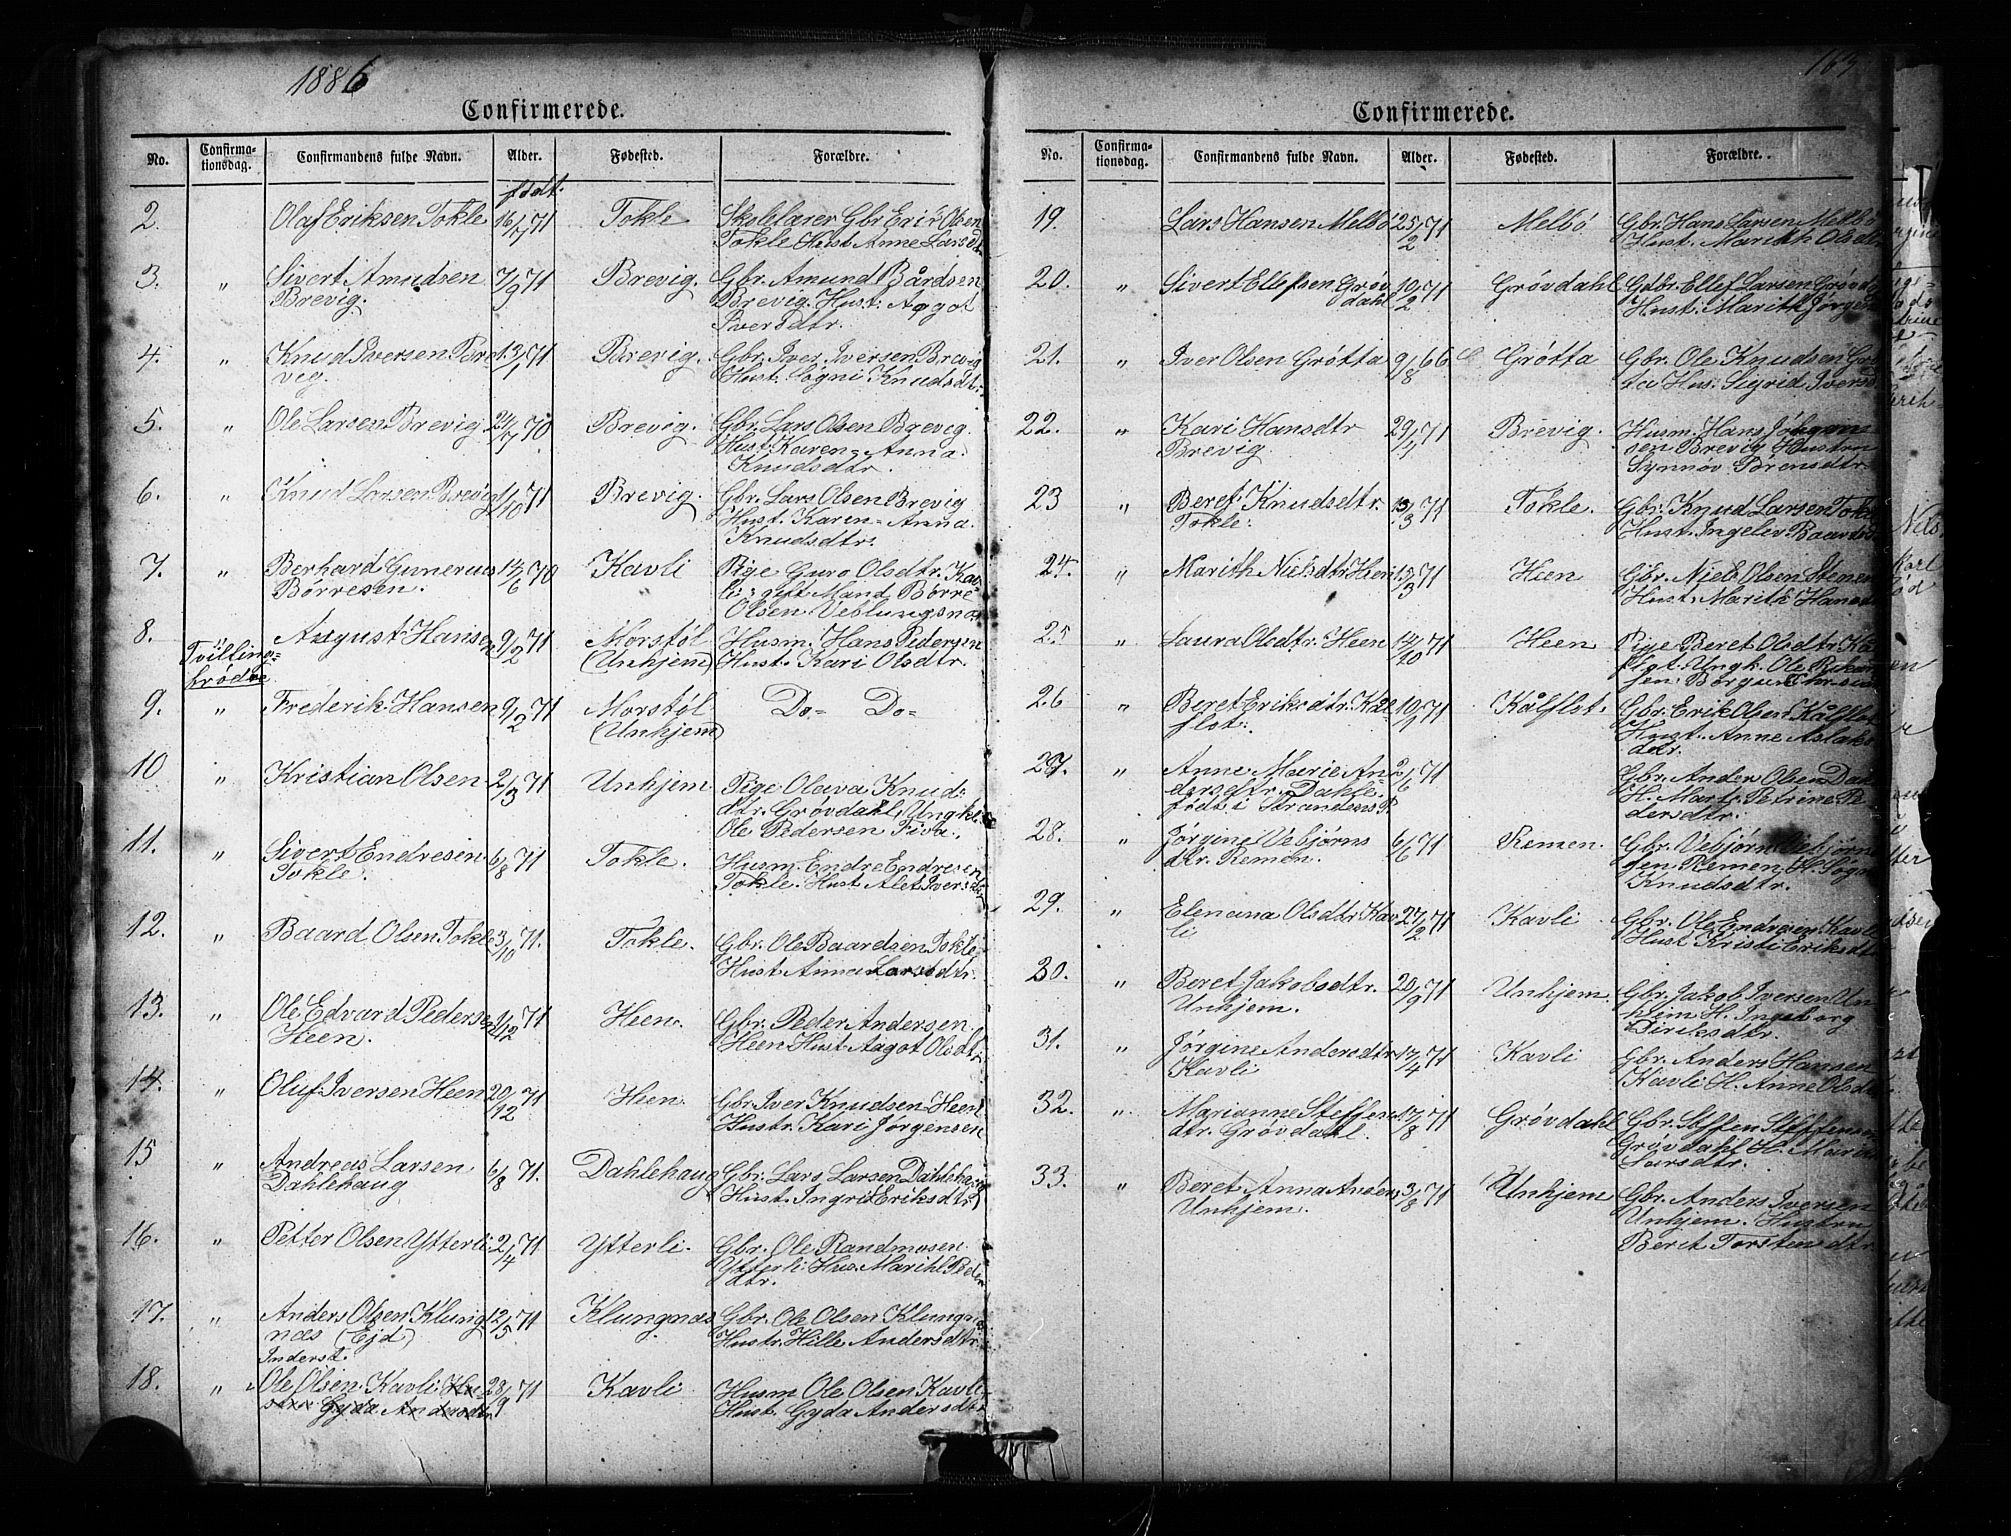 1886
Confirmerede.
No. Confirma-tionsdag. Confirmandens fulde Navn. Alder. Fødested. Forældre.
født.
2. Olaf Eriksen Tokle 16/7 71 Tokle Skolelærer Gbr. Erik Olsen
Tokle Hust. Anne Larsdtr
3. " Sivert Amundsen 7/9 71 Brevig. Gbr. Amund Bårdsen
Brevig. Brevig. Hust. Aagot
Iversdtr.
4. " Knud Iversen Bre 13/1 71 Brevig. Gbr. Iver Iversen Brevig
vig. Hust. Søgni Knudsdtr.
5. " Ole Larsen Brevig 24/7 70 Brevig. Gbr. Lars Olsen Brevig.
Hust. Karen=Anna
Knudsdtr.
6. " Knud Larsen Brevig 1/10 71 Brevig. Gbr. Lars Olsen Brevig
Hust. Karen=Anna
Knudsdtr.
7. " Berhard Gunerius 14/6 70 Kavli Pige Guro Olsdtr. Kav
Børresen. li: gift Mand Børre
Olsen Veblungsnæs
8. August Hansen 9/2 71 Morstøl Husm. Hans Pedersen
Tvilling= (Unhjem) Hust. Kari Olsdtr.
brødre
9. " Frederik Hansen 9/2 71 Morstøl Do= Do=
(Unhjem)
10 " Kristian Olsen 2/3 71 Unhjem Pige Olava Knud:
dtr. Grøvdahl, Ungkl:
Ole Pedersen Fiva.
11. " Sivert Endresen 6/8 71 Tokle. Husm. Endre Endresen
Tokle. Tokle. Hust. Alet Iversdtr
12. " Baard Olsen Tokle 3/10 71. Tokle. Gbr. Ole Baardsen Tokle
Hust. Anna Larsdtr.
13. " Ole Edvard Pedersen 1/12 71 Heen. Gbr. Peder Andersen
Heen. Heen Hust. Aagot Olsdtr
14. " Oluf Iversen Heen 20/12 71 Heen. Gbr. Iver Knudsen Heen
Hustr. Kari Jørgensen
15 " Andreas Larsen 6/8 71. Dahlehaug Gbr. Lars Larsen Dahlehaug
Dahlehaug Hust. Ingrid Eriksdtr
16. " Petter Olsen Ytterli 2/4 71 Ytterli. Gbr. Ole Randmosen
Ytterli Hus. Marith Peder
dtr.
17. " Anders Olsen Klung 12/5 71 Klungnæs Gbr. Ole Olsen Klungnæs
næs (Ejd Hustr. Hille Andersdtr.
Inderst.
18. " Ole Olsen Kavli Hu 28/9 71 Kavli Husm Ole Olsen Kavli
stru Gyda Andersdtr Hust. Gyda Andersdtr.
Confirmerede.
No. Confirma-tionsdag. Confirmandens fulde Navn. Alder. Fødested. Forældre.
19. Lars Hansen Melbö 25/2 71 Melbö Gbr. Hans Larsen Melbö
Hust. Marith Olsdtr
20. " Sivert Ellefsen Grøv 10/2 71 Grøvdahl Gdbr. Ellef Larsen Grøvda
dahl Hust. Marith Jørgens
21. " Iver Olsen Grötta 9/8 66 Grötta Gbr. Ole Knudsen Grö
ta Hus: Sigrid Iversd
22. " Kari Hansdtr 29/1 71 Brevig. Husm. Hans Jörgens
Brevig sen Brevig Hustru
Synnöv Börensdtr.
23 " Beret Knudsdtr. 13/3 71 Tokle. Gbr. Knud Larsen Tokle
Tokle. Hust. Ingelev Baardsd
24. " Marith Nielsdtr Heen 15/3 71 Heen Gbr. Niels Olsen Stenen
Hust. Marith Hansd
25 " Laura Olsdtr. Heen 14/10 71 Heen Pige Beret Olsdtr. Ka
flot. Ungk. Ole
sen
26 " Beret Eriksdtr. Kal 19/1 71 Kålflst. Gbr. Erik Olsen Kålflot
flot. Hust. Anne Aslaks
dtr.
27. " Anne Marie An 2/6 71 Gbr. Anders Olsen Dah
dersdtr. Dahle. H. Mart. Petrine Pe
født i Strandens P. dersdtr.
28. " Jørgine Vebjørns 6/6 71 Remen. Gbr. Vebjørn Vebjørn
dtr. Remen. sen Remen, H. Søgn
Knudsdtr.
29. " Elenana Olsdtr. Kav 27/2 71 Kavli Gbr. Ole Endresen Kavli
li Hust Kristi Eriksdtr
30. " Beret Jakobsdtr. 20/9 71 Unhjem. Gbr. Jakob Iversen Un
Unhjem. hjem H. Ingeborg
Diriksdtr.
31. " Jørgine Andersdtr 17/4 71 Kavli Gbr. Anders Hansen
Kavli Kavli H. Anne Olsdtr
32. " Marianne Steffens 17/8 71 Grøvdahl Gbr. Steffen Steffensen
dtr. Grøvdahl. Grøvdahl H. Maria
Larsdtr.
33. " Beret Anna Anders 3/8 71 Unhjem Gbr. Anders Iversen
Unhjem. Unhjem. Hustru
Beret Torstendtr